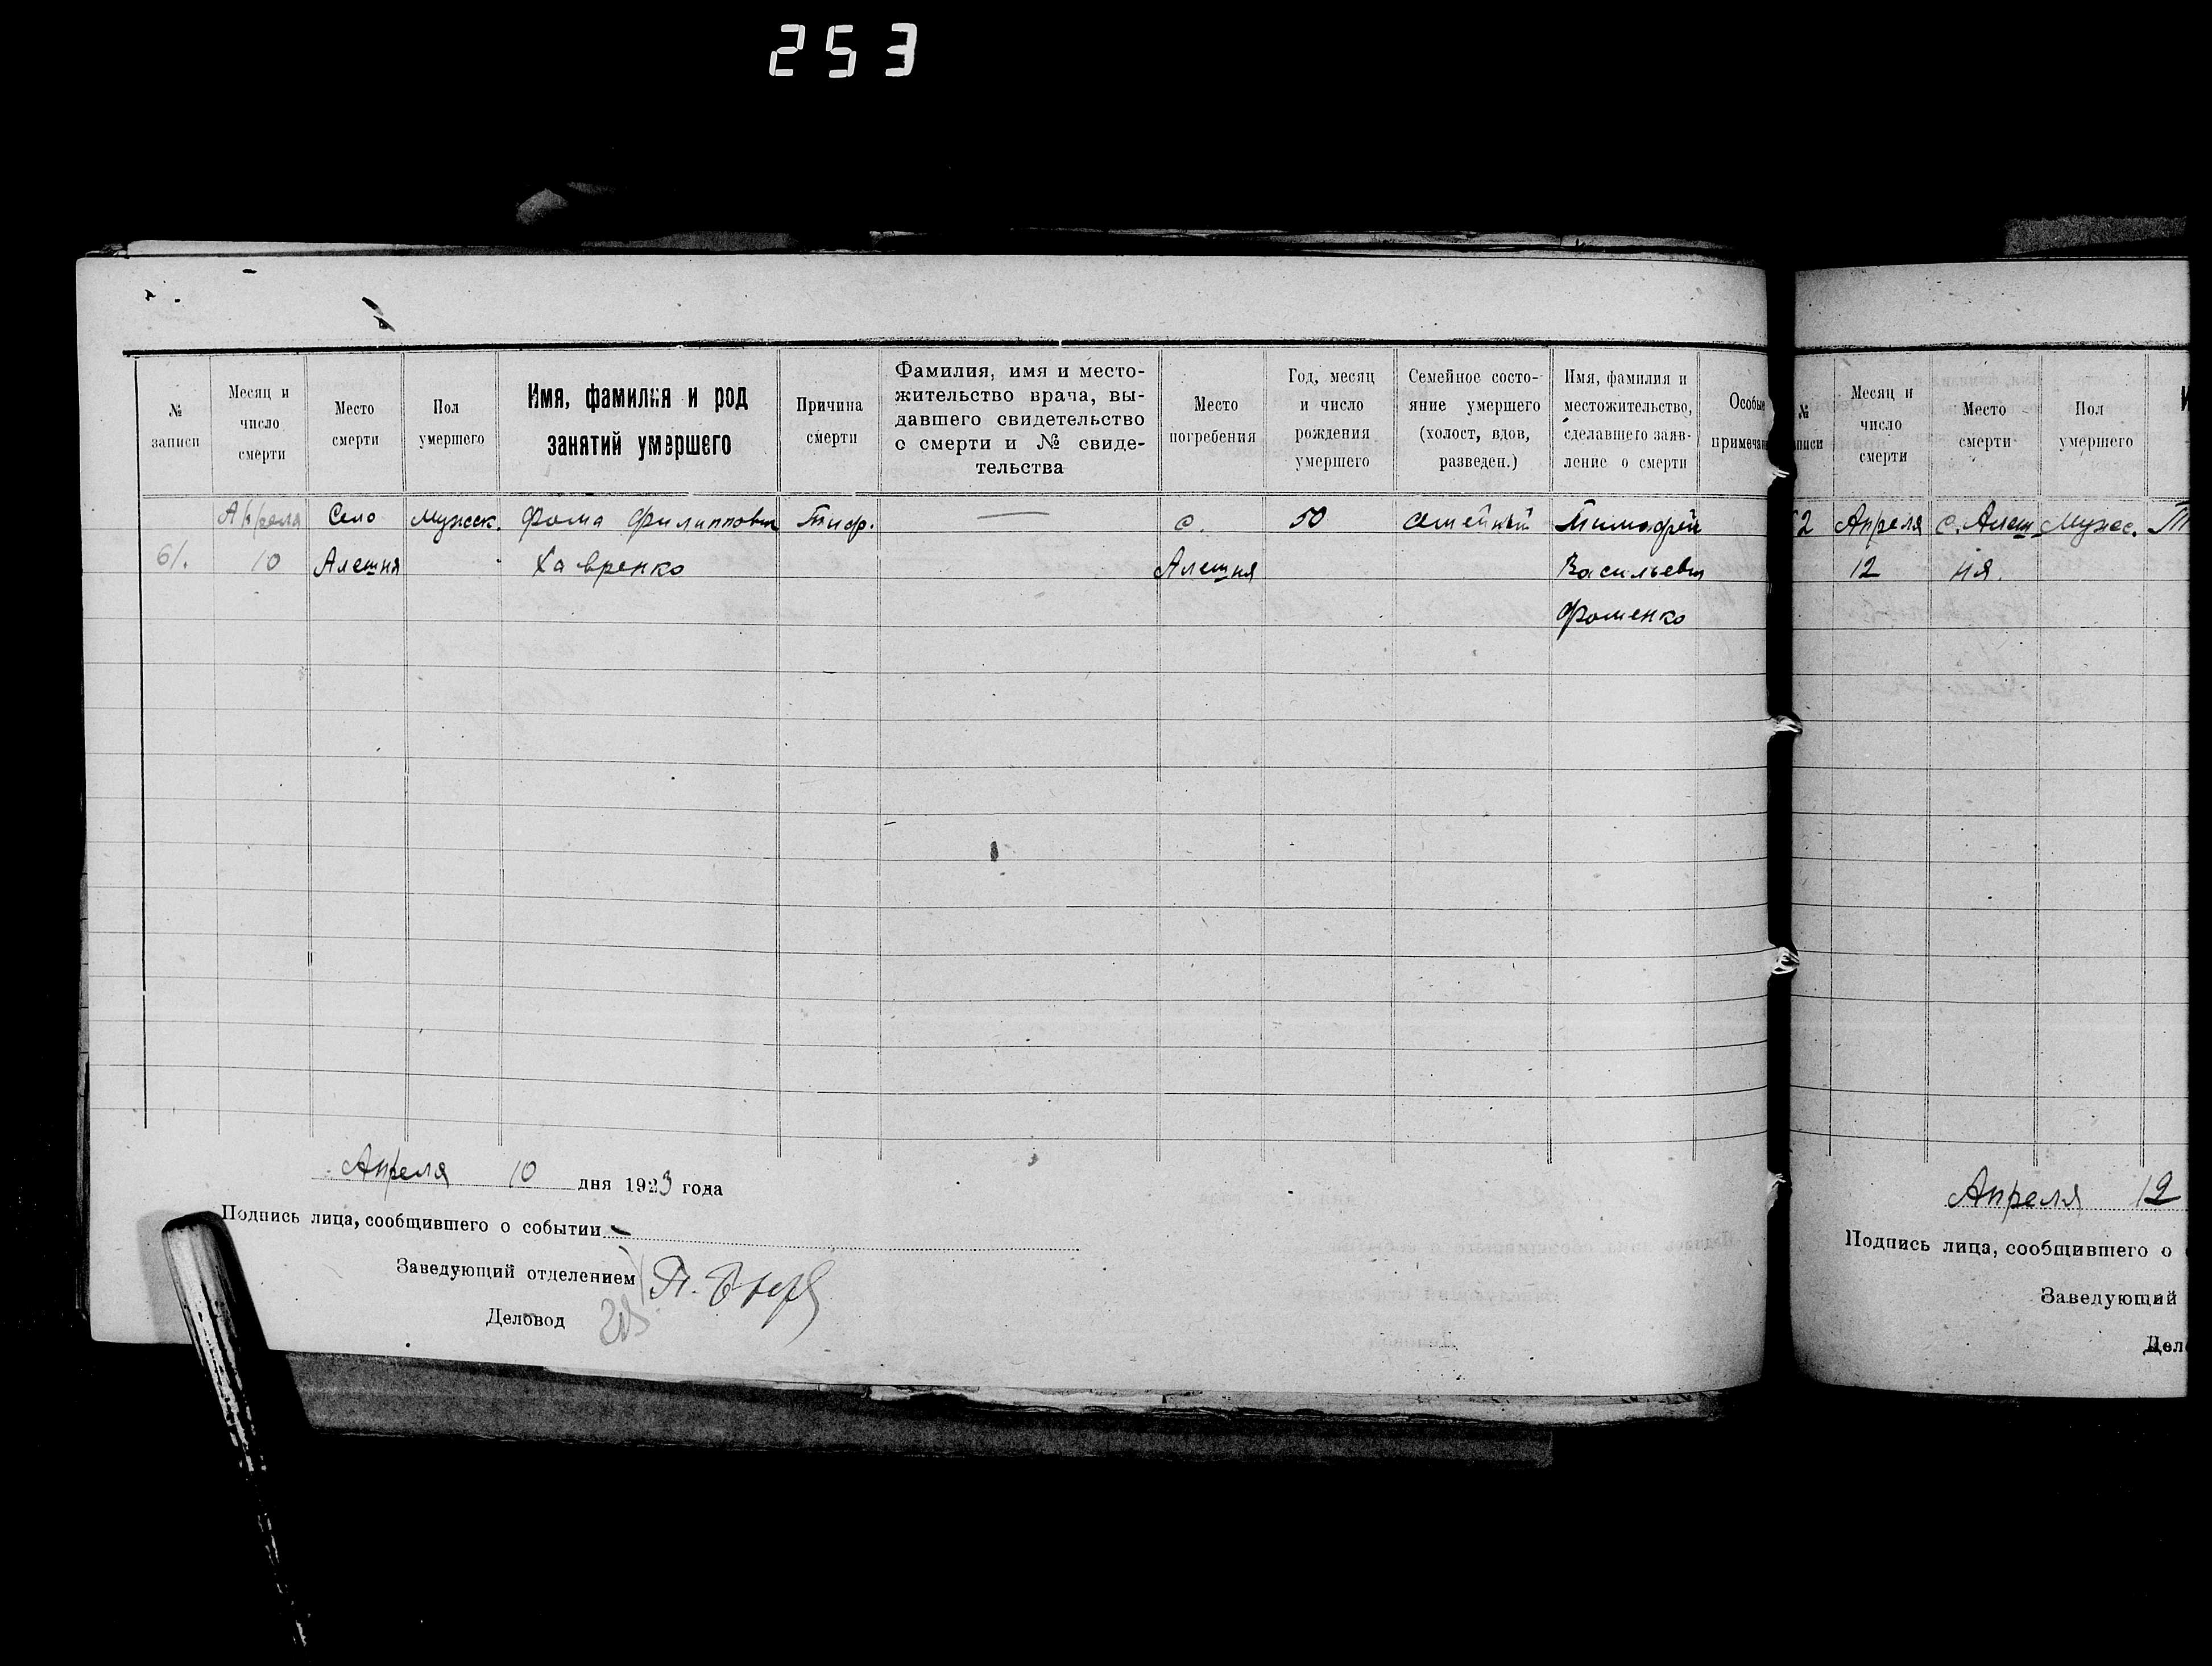 253
№ записи
Месяц и число смерти
Место смерти
Пол умершего
Имя, фамилия и род занятий умершего
Причина смерти
Фамилия, имя и место-
жительство врача, вы-
давшего свидетельство
о смерти и № свиде-
тельства
Место погребения
Год, месяц и число рождения умершего
Семейное состо-
яние умершего
(холост, вдов,
разведен.)
Имя, фамилия и
местожительство,
сделавшего заяв-
ление о смерти
Особые
примечан
61.
Апреля
10
Село
Алешня
Мужеск.
Фома Филиппович
Хавренко
Тиф.
—
с.
Алешня
50
семейный
Тимофей
Васильевич
Фоменко
Апреля 10 дня 1923 года
Подпись лица, сообщившего о событии
Заведующий отделением
Деловод
№
писи
Месяц и
число
смерти
Место
смерти
Пол
умершего
И
2
Апреля
12
с. Алеш
ня.
Мужес.
Т
Апреля 12
Подпись лица, сообщившего о
Заведующий
Дел